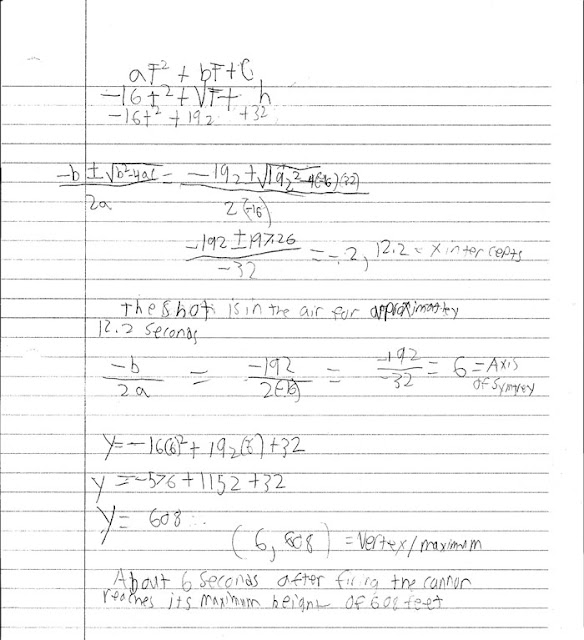 at² + bt + C
-16t² + Vt + h
-16t² + 192 + 32
-b ± √b²-4ac / 2a = -192 ± √192²-4(-16)(32) / 2(-16)
-192 ± 197.26 / -32 = -.2, 12.2 = x intercepts
the shot is in the air for approximatley
12.2 seconds
-b / 2a = -192 / 2(-16) = -192 / -32 = 6 = Axis of Symtrey
y = -16(6)² + 192(6) + 32
y = -576 + 1152 + 32
y = 608
(6, 608) = Vertex/maximum
About 6 seconds after firing the cannon
reaches its maximum height of 608 feet